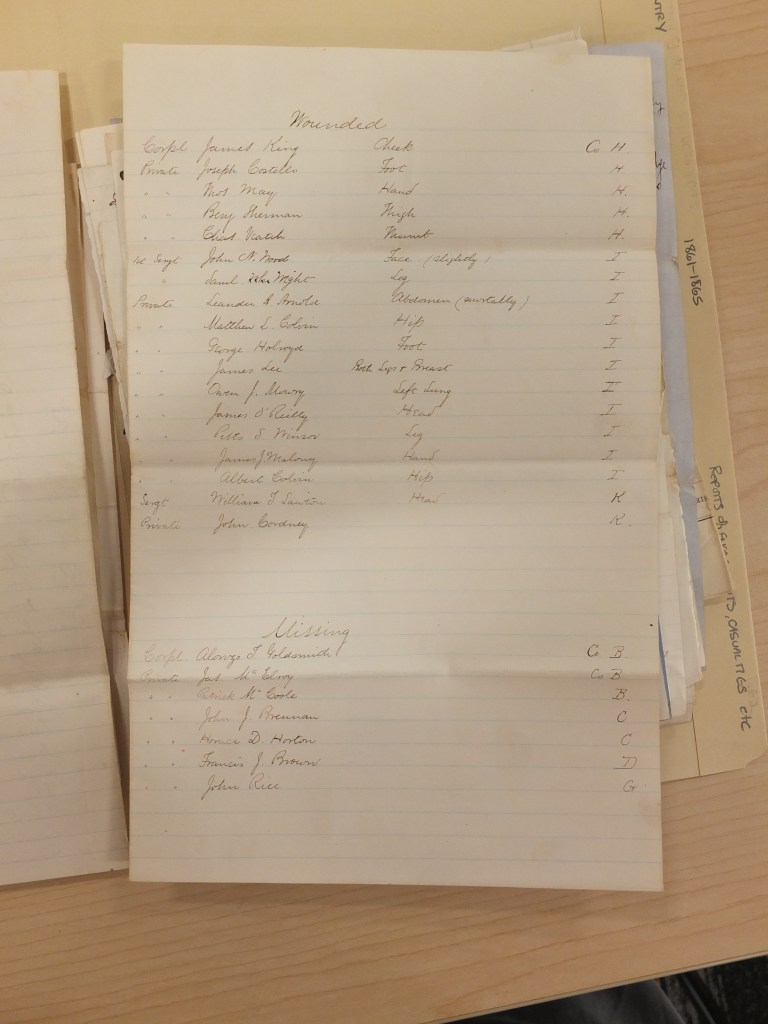 Wounded
Corpl James King Cheek Co H.
Private Joseph Costello Foot H.
" " Thos May Hand H.
" " Benj Sherman Thigh H.
" " Chas H.
1st Sergt John N. Wood Face (slightly) I
" Saml Wight Leg I
Private Leander A. Arnold Abdomen (mortally) I
" " Matthew L. Colvin Hip I
" " George Holroyd Foot I
" " James Lee Both Legs & Breast I
" " Owen J. Mowry Left Lung I
" " James O'Reilly Head I
" " S. Winsor Leg I
" " James J Malony Hand I
" Albert Colvin Hip I
Sergt William F. Lawton Head K
Private John Cordney K.
Missing
Corpl. Alonzo F. Goldsmith Co B.
Private Jas. Mc Elroy Co B.
" " Patrick Mc Coole B.
" " John J. Brennan C
" " Horace D. Horton C
" " Francis J. Brown D
" " John Rice G
1861-1865
Reports of
, CASUALTIES etc